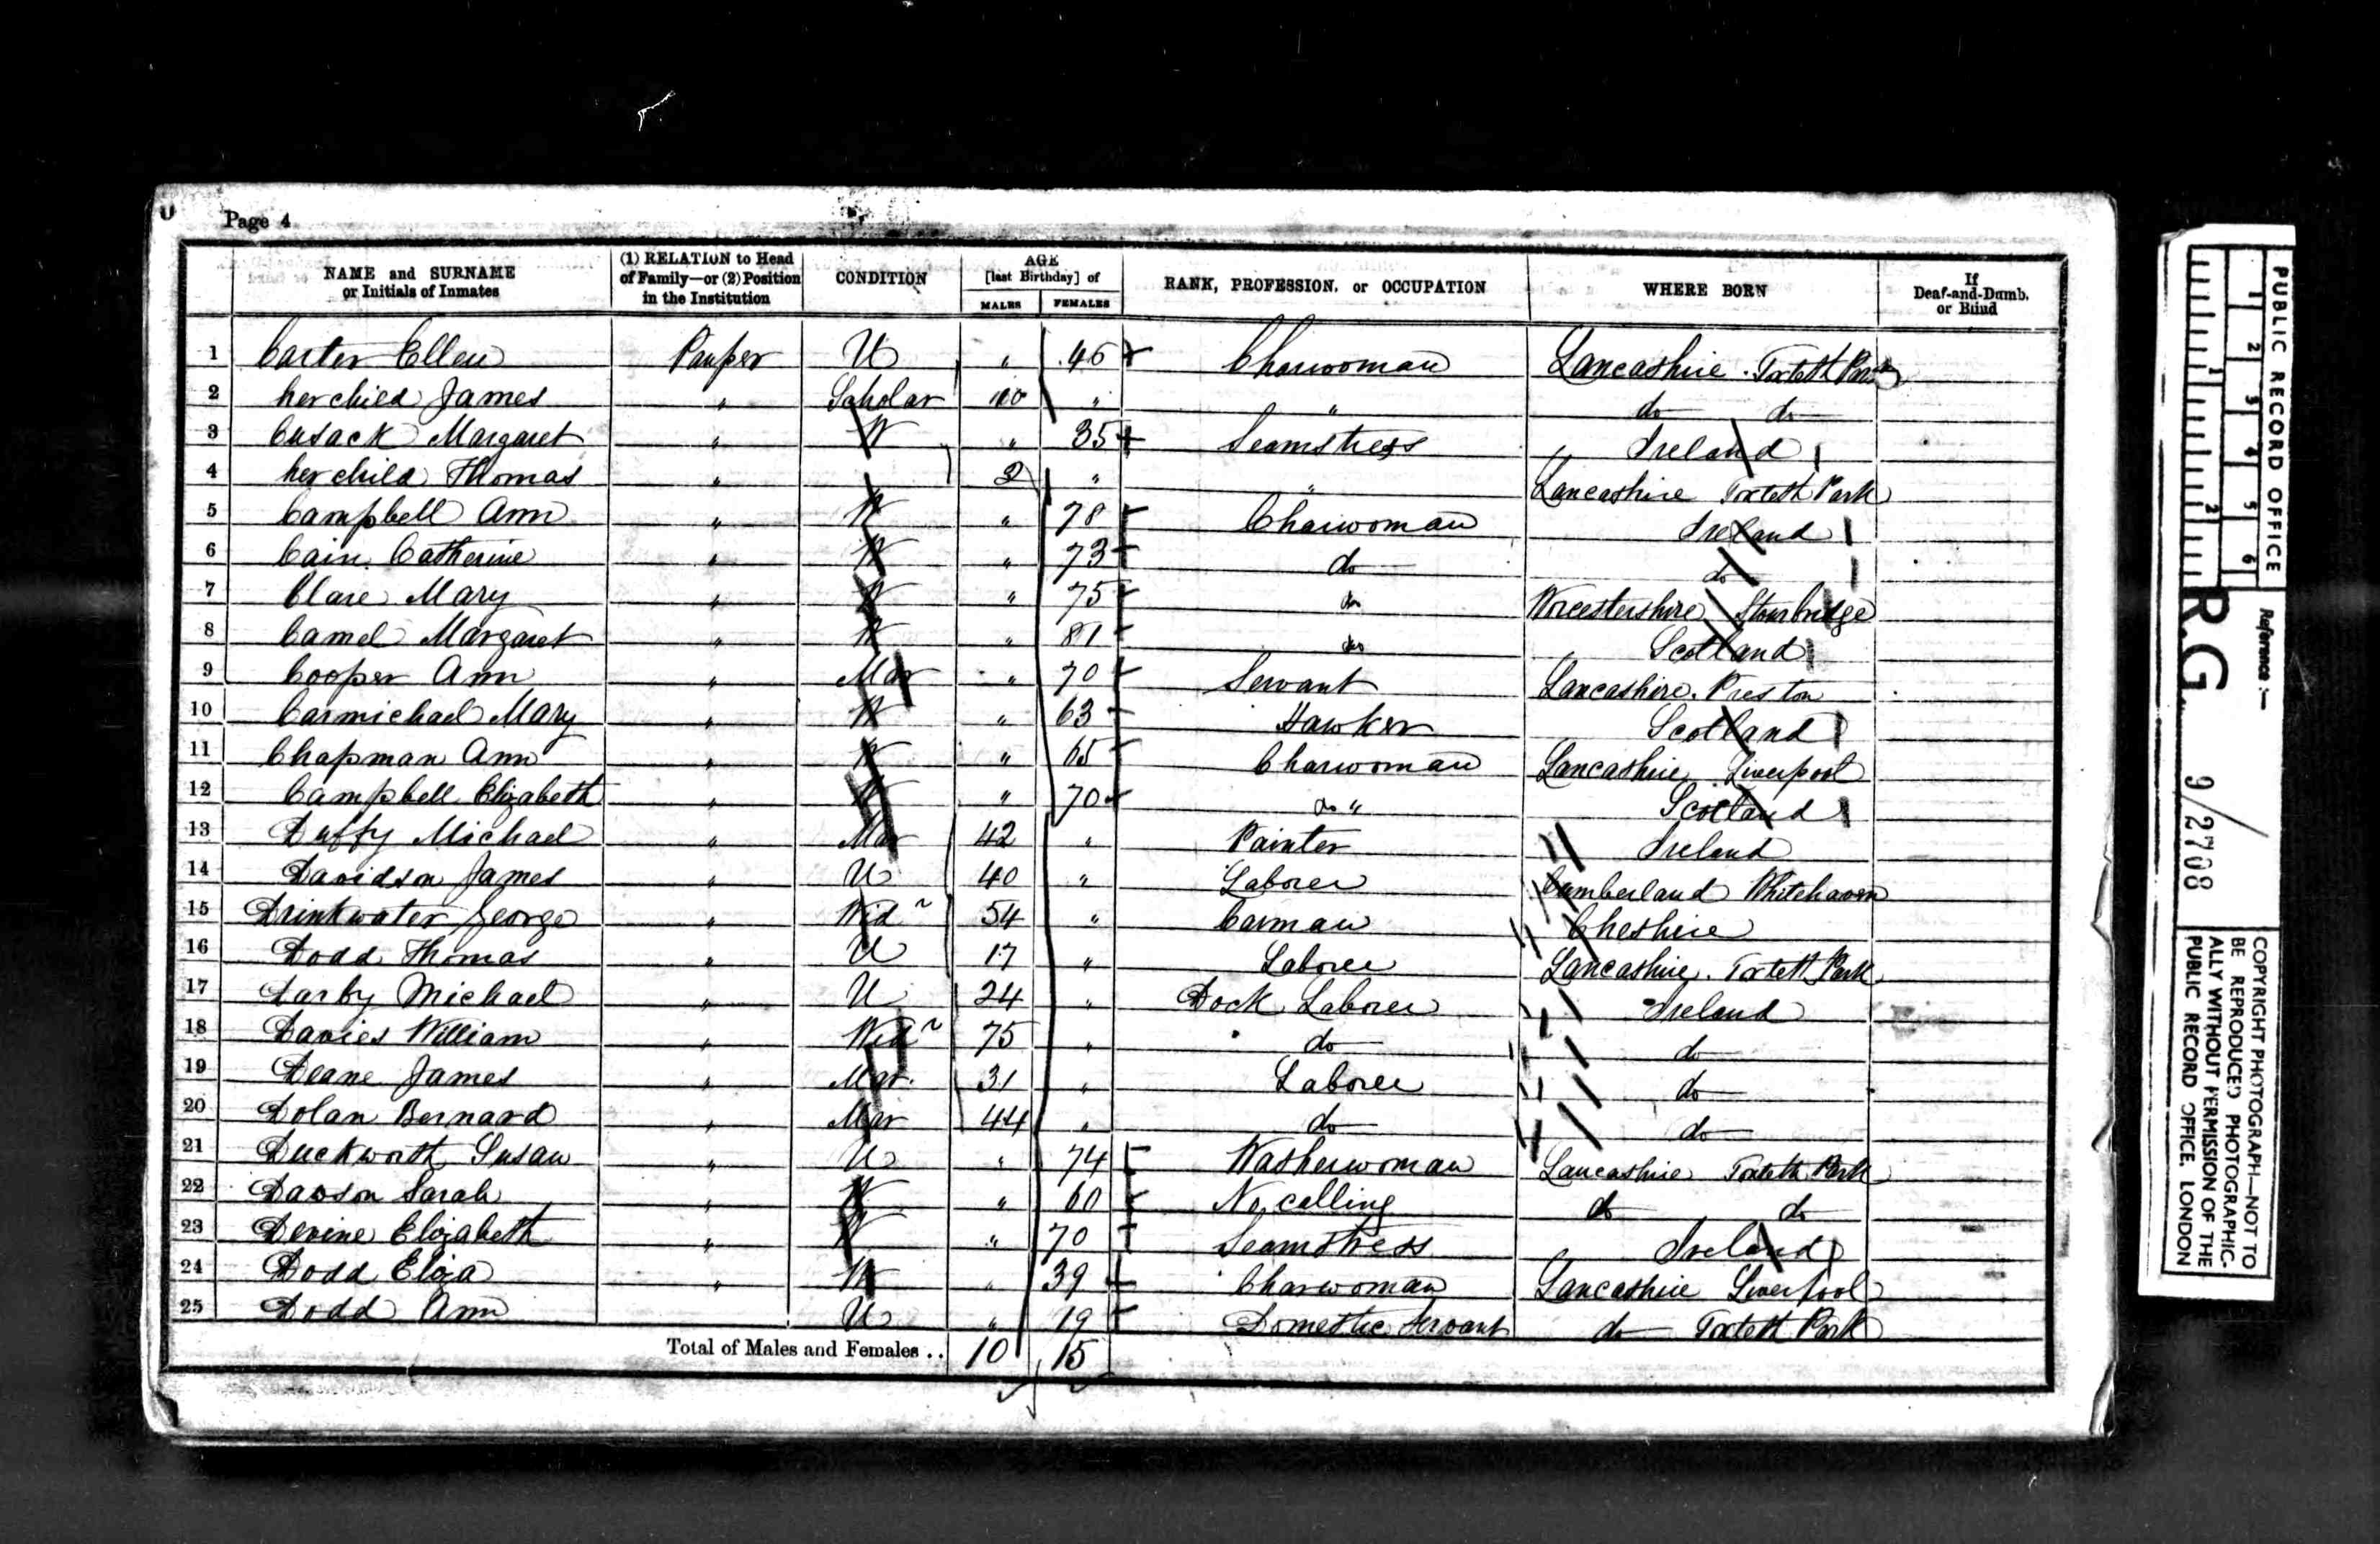 Page 4
NAME and SURNAME or Initials of Inmates | (1) RELATION to Head of Family—or (2) Position in the Institution | CONDITION | AGE [last Birthday] of MALES | FEMALES | RANK, PROFESSION, or OCCUPATION | WHERE BORN | If Deaf-and-Dumb, or Blind
1 Carter Ellen Pauper U " 46 Charwoman Lancashire Toxteth Park
2 her child James " Scholar 10 " " do do
3 Cusack Margaret " W " 35 Seamstress Ireland
4 her child Thomas " 2 " " Lancashire Toxteth Park
5 Campbell Ann " W " 78 Charwoman Ireland
6 Cain Catherine " W " 73 do do
7 Clare Mary " W " 75 do Worcestershire Stourbridge
8 Camel Margaret " W " 81 do Scotland
9 Cooper Ann " Mar " 70 Servant Lancashire. Preston
10 Carmichael Mary " W " 63 Hawker Scotland
11 Chapman Ann " W " 65 Charwoman Lancashire Liverpool
12 Campbell Elizabeth " W " 70 do " Scotland
13 Duffy Michael " Mar 42 " Painter Ireland
14 Davidson James " U 40 " Laborer Cumberland Whitehaven
15 Drinkwater George " Widr 54 " Carman Cheshire
16 Dodd Thomas " U 17 " Laborer Lancashire. Toxteth Park
17 Darby Michael " U 24 " Dock Laborer Ireland
18 Davies William " Widr 75 " do do
19 Deane James " Mar. 31 " Laborer do
20 Dolan Bernard " Mar 44 " do do
21 Duckworth Susan " U " 74 Washerwoman Lancashire Toxteth Park
22 Dawson Sarah " W " 60 No calling do do
23 Devine Elizabeth " W " 70 Seamstress Ireland
24 Dodd Eliza " W " 39 Charwoman Lancashire Liverpool
25 Dodd Ann U " 19 Domestic Servant do Toxteth Park
Total of Males and Females .. 10 15
PUBLIC RECORD OFFICE
1 2 3 4 5 6
1 2
Reference :—
R.G. 9/2708
COPYRIGHT PHOTOGRAPH—NOT TO
BE REPRODUCED PHOTOGRAPHIC-
ALLY WITHOUT PERMISSION OF THE
PUBLIC RECORD OFFICE, LONDON